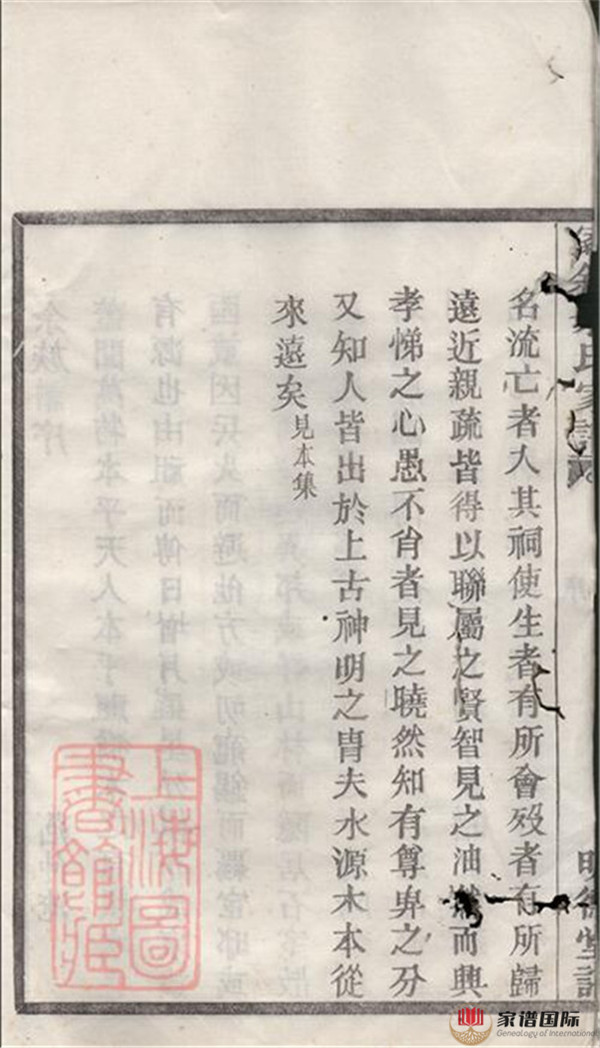 名流亡者人其祠使生者有所會歿者有所歸
遠近親疏皆得以聯屬之賢智見之油燃而興
孝悌之心愚不肖者見之曉然知有尊卑之分
又知人皆出於上古神明之胄夫水源木本從
來遠矣見本集
氏家譜
明德堂記
上海圖書館藏
家谱国际
Genealogy of International